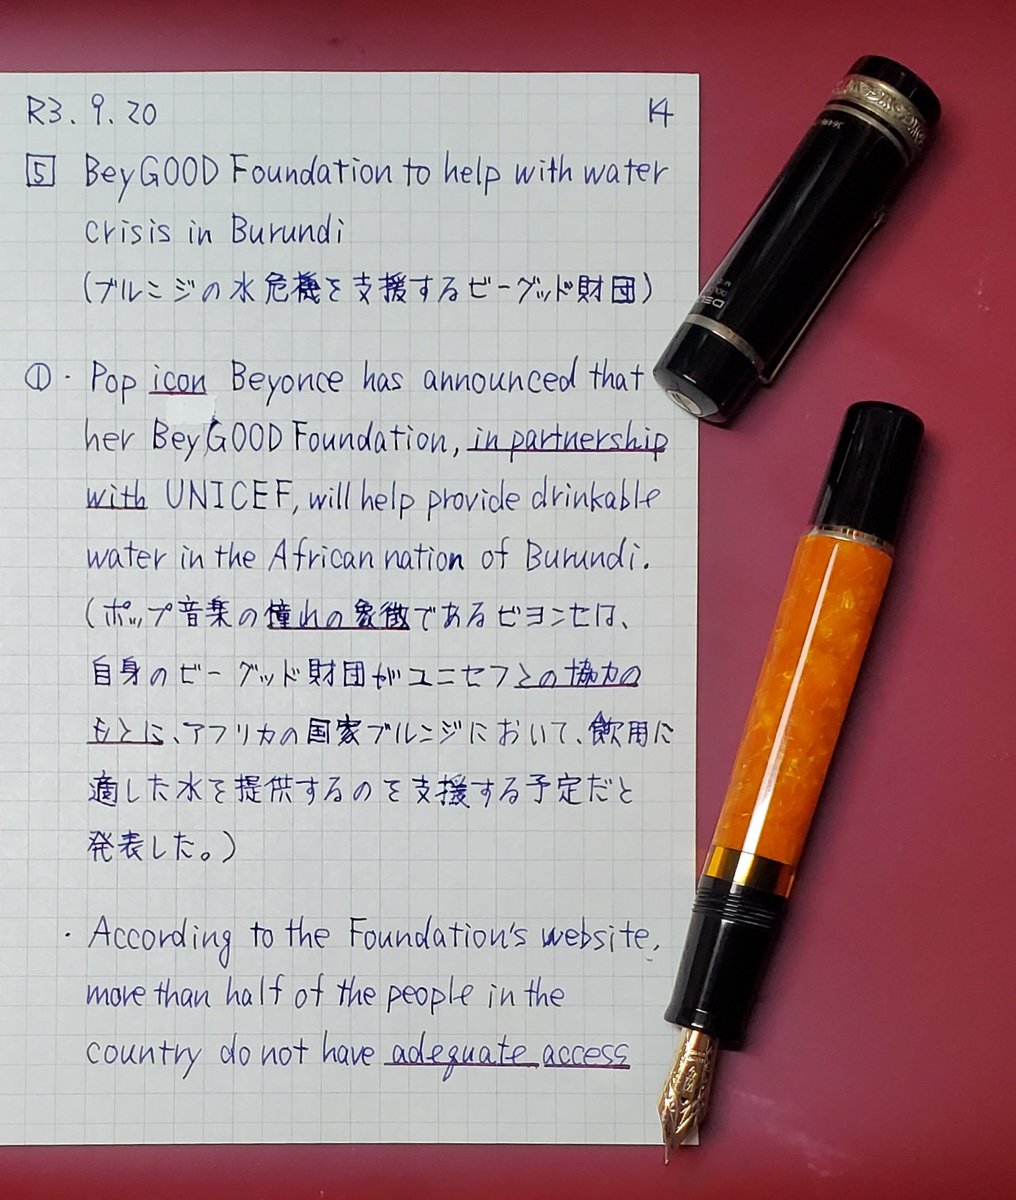 R3.9.20 14
5 BeyGOOD Foundation to help with water
crisis in Burundi
(ブルンジの水危機を支援するビーグッド財団)
① ・ Pop icon Beyonce has announced that
her BeyGOOD Foundation, in partnership
with UNICEF, will help provide drinkable
water in the African nation of Burundi.
(ポップ音楽の憧れの象徴であるビヨンセは、
自身のビーグッド財団がユニセフとの協力の
もとに、アフリカの国家ブルンジにおいて、飲用に
適した水を提供するのを支援する予定だと
発表した。)
・ According to the Foundation's website,
more than half of the people in the
country do not have adequate access